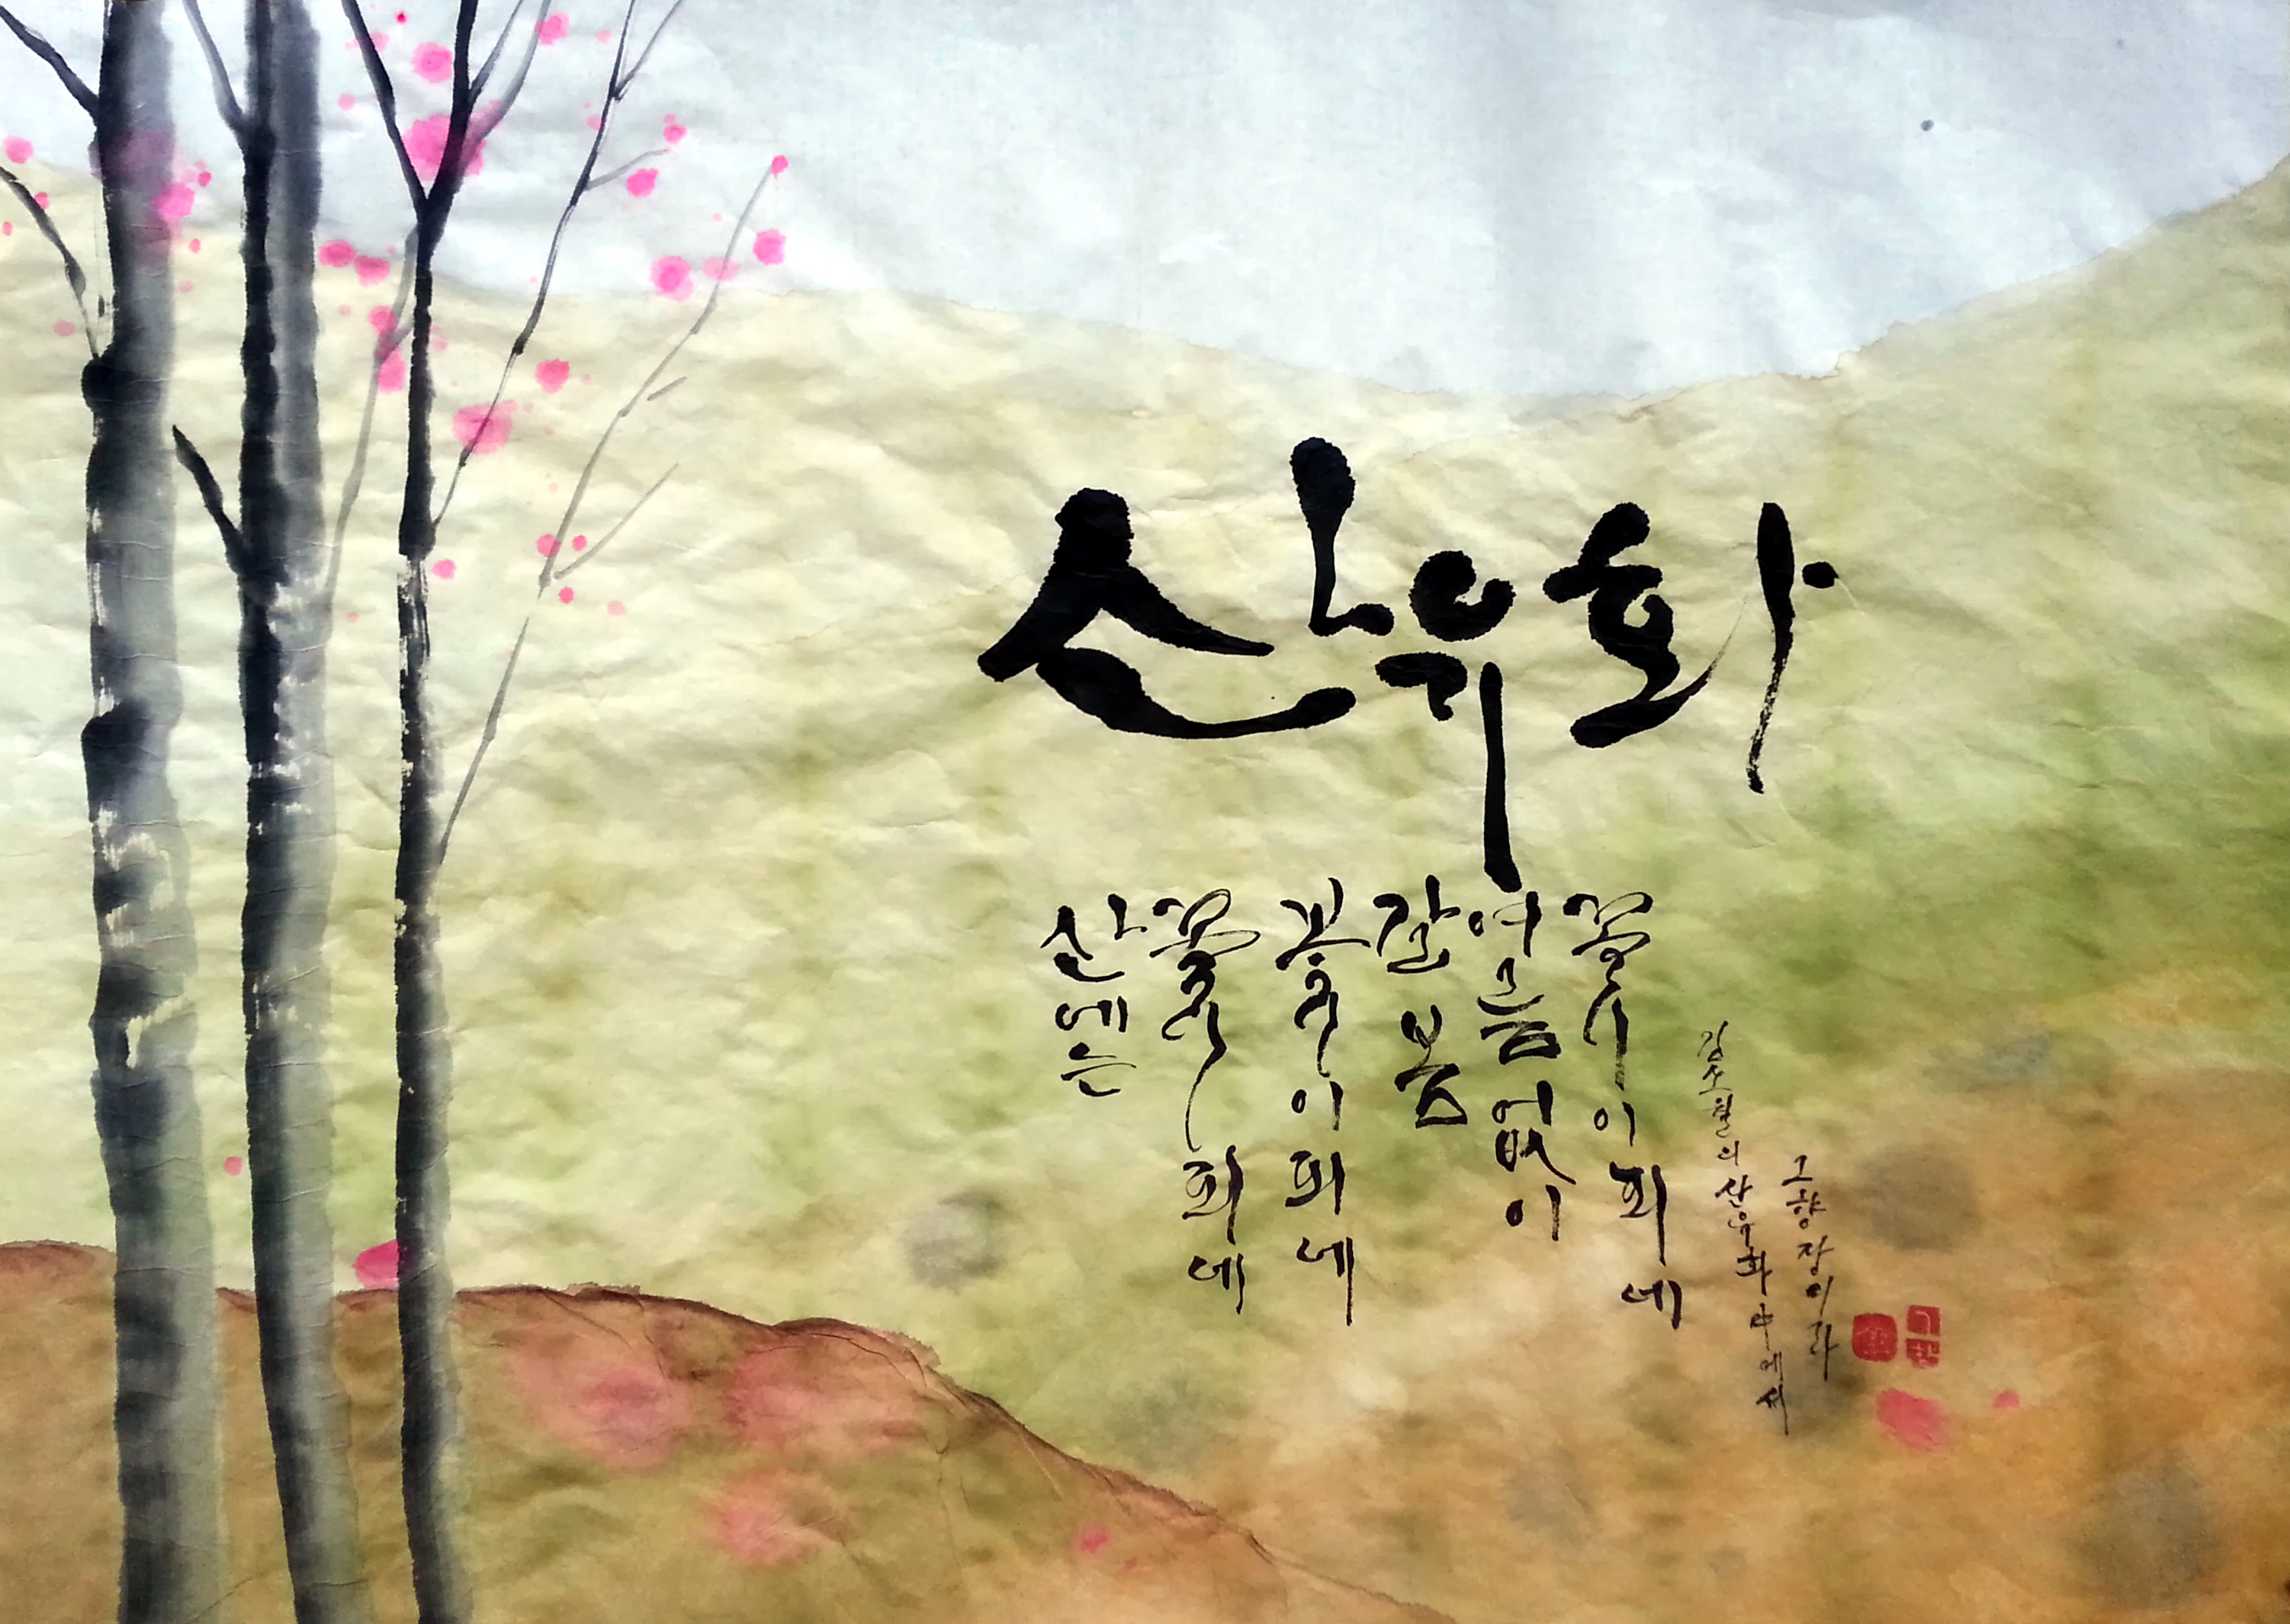 산유화
산에는
꽃 피네
꽃이 피네
갈 봄
여름 없이
꽃이 피네
김소월의 산유화 中에서
그향 장이라